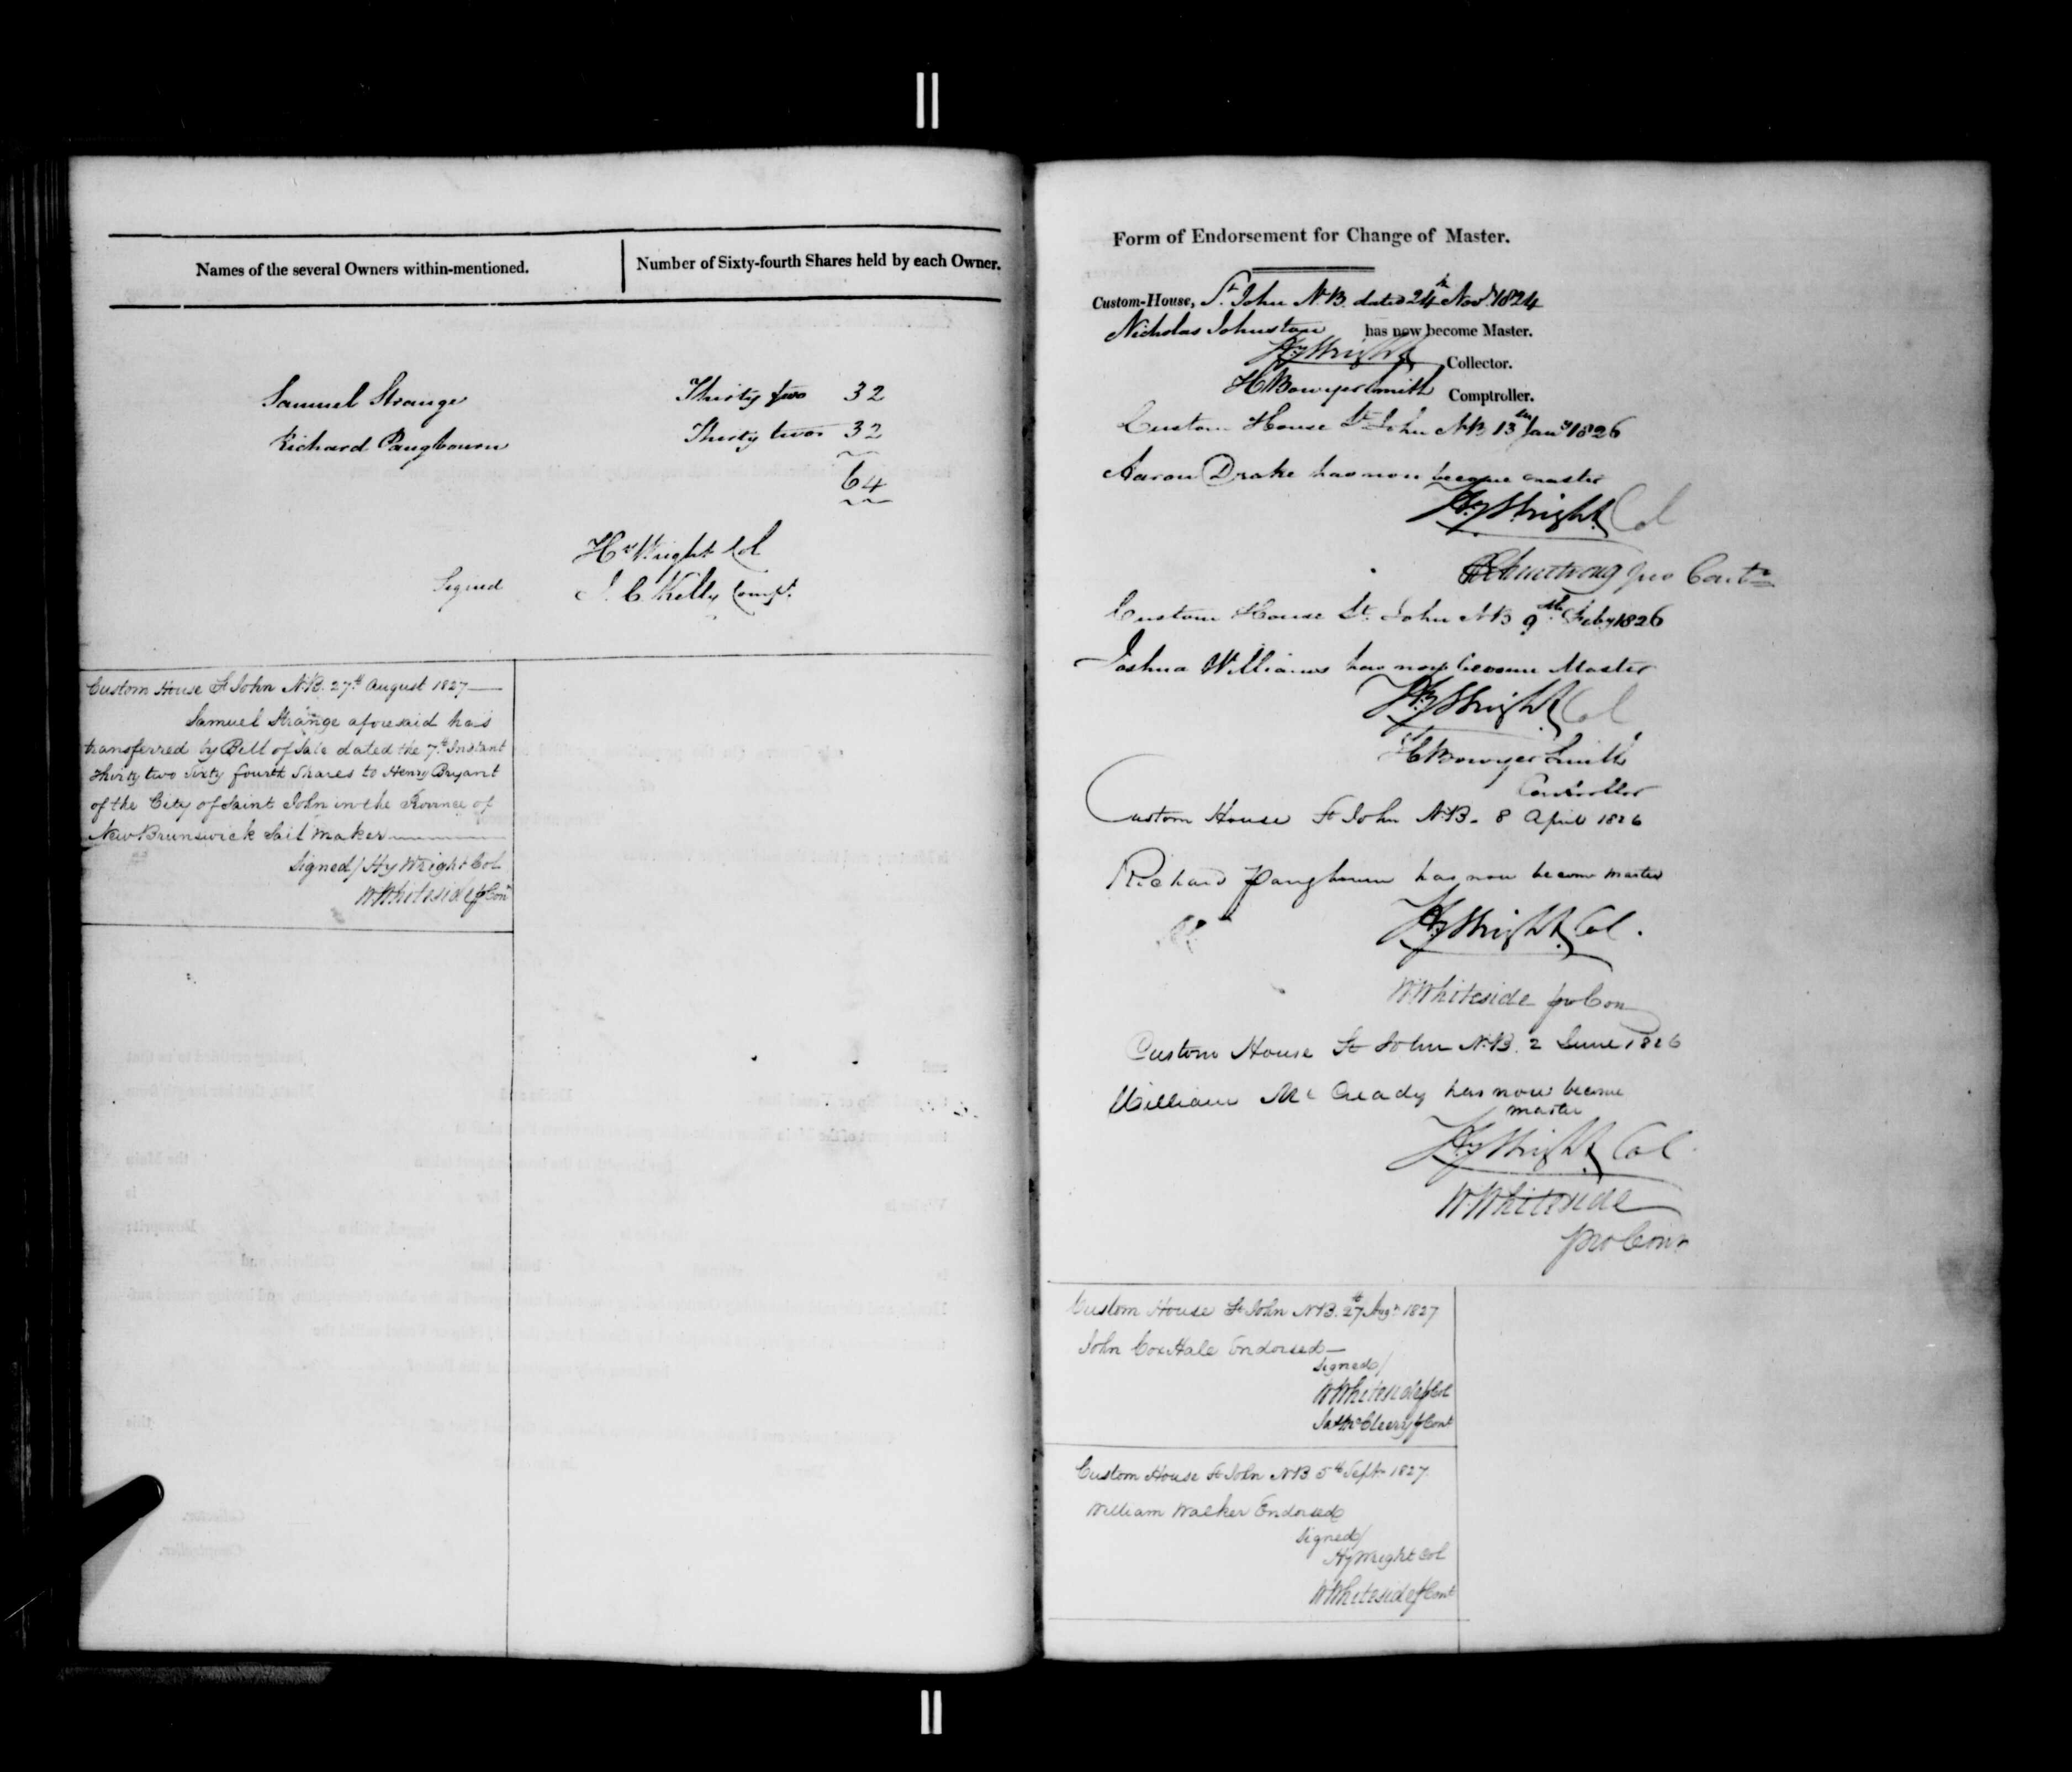 Names of the several Owners within-mentioned.
Number of Sixty-fourth Shares held by each Owner.
Samuel Strange Thirty two 32
Richard Pangbourn Thirty two 32
64
Hy Wright Col
Signed J. C. Kelly Compt.
Custom House St John N.B. 27th August 1827
Samuel Strange aforesaid has
transferred by Bill of Sale dated the 7th Instant
thirty two Sixty fourth Shares to Henry Bryant
of the City of Saint John in the Province of
New Brunswick Sail Maker
Signed/ Hy Wright Col
W Whiteside p Con
Form of Endorsement for Change of Master.
Custom-House, St. John N.B. dated 24th Novr. 1824
Nicholas Johnston has now become Master.
Hy Wright Collector.
H Bowyer Smith Comptroller.
Custom House St John NB 13th Jany 1826
Aaron Drake has now become master
Hy Wright Col
Armstrong pro Contr
Custom House St. John NB 9th Feby 1826
Joshua Williams has now become Master
Hy Wright Col
H Bowyer Smith
Controller
Custom House St John N.B. 8 April 1826
Richard Pangbourn has now become master
Hy Wright Col.
W Whiteside pro Con
Custom House St John N.B. 2 June 1826
William Mc Cready has now become
master
Hy Wright Col
W Whiteside
pro Conr
Custom House St John NB. 27th Augt 1827
John Cox Hale Endorsed
Signed/
W Whiteside p Col
Jas McCleery p Cont
Custom House St John NB 5th Sept 1827.
William Walker Endorsed
Signed/
Hy Wright Col
W Whiteside p Cont